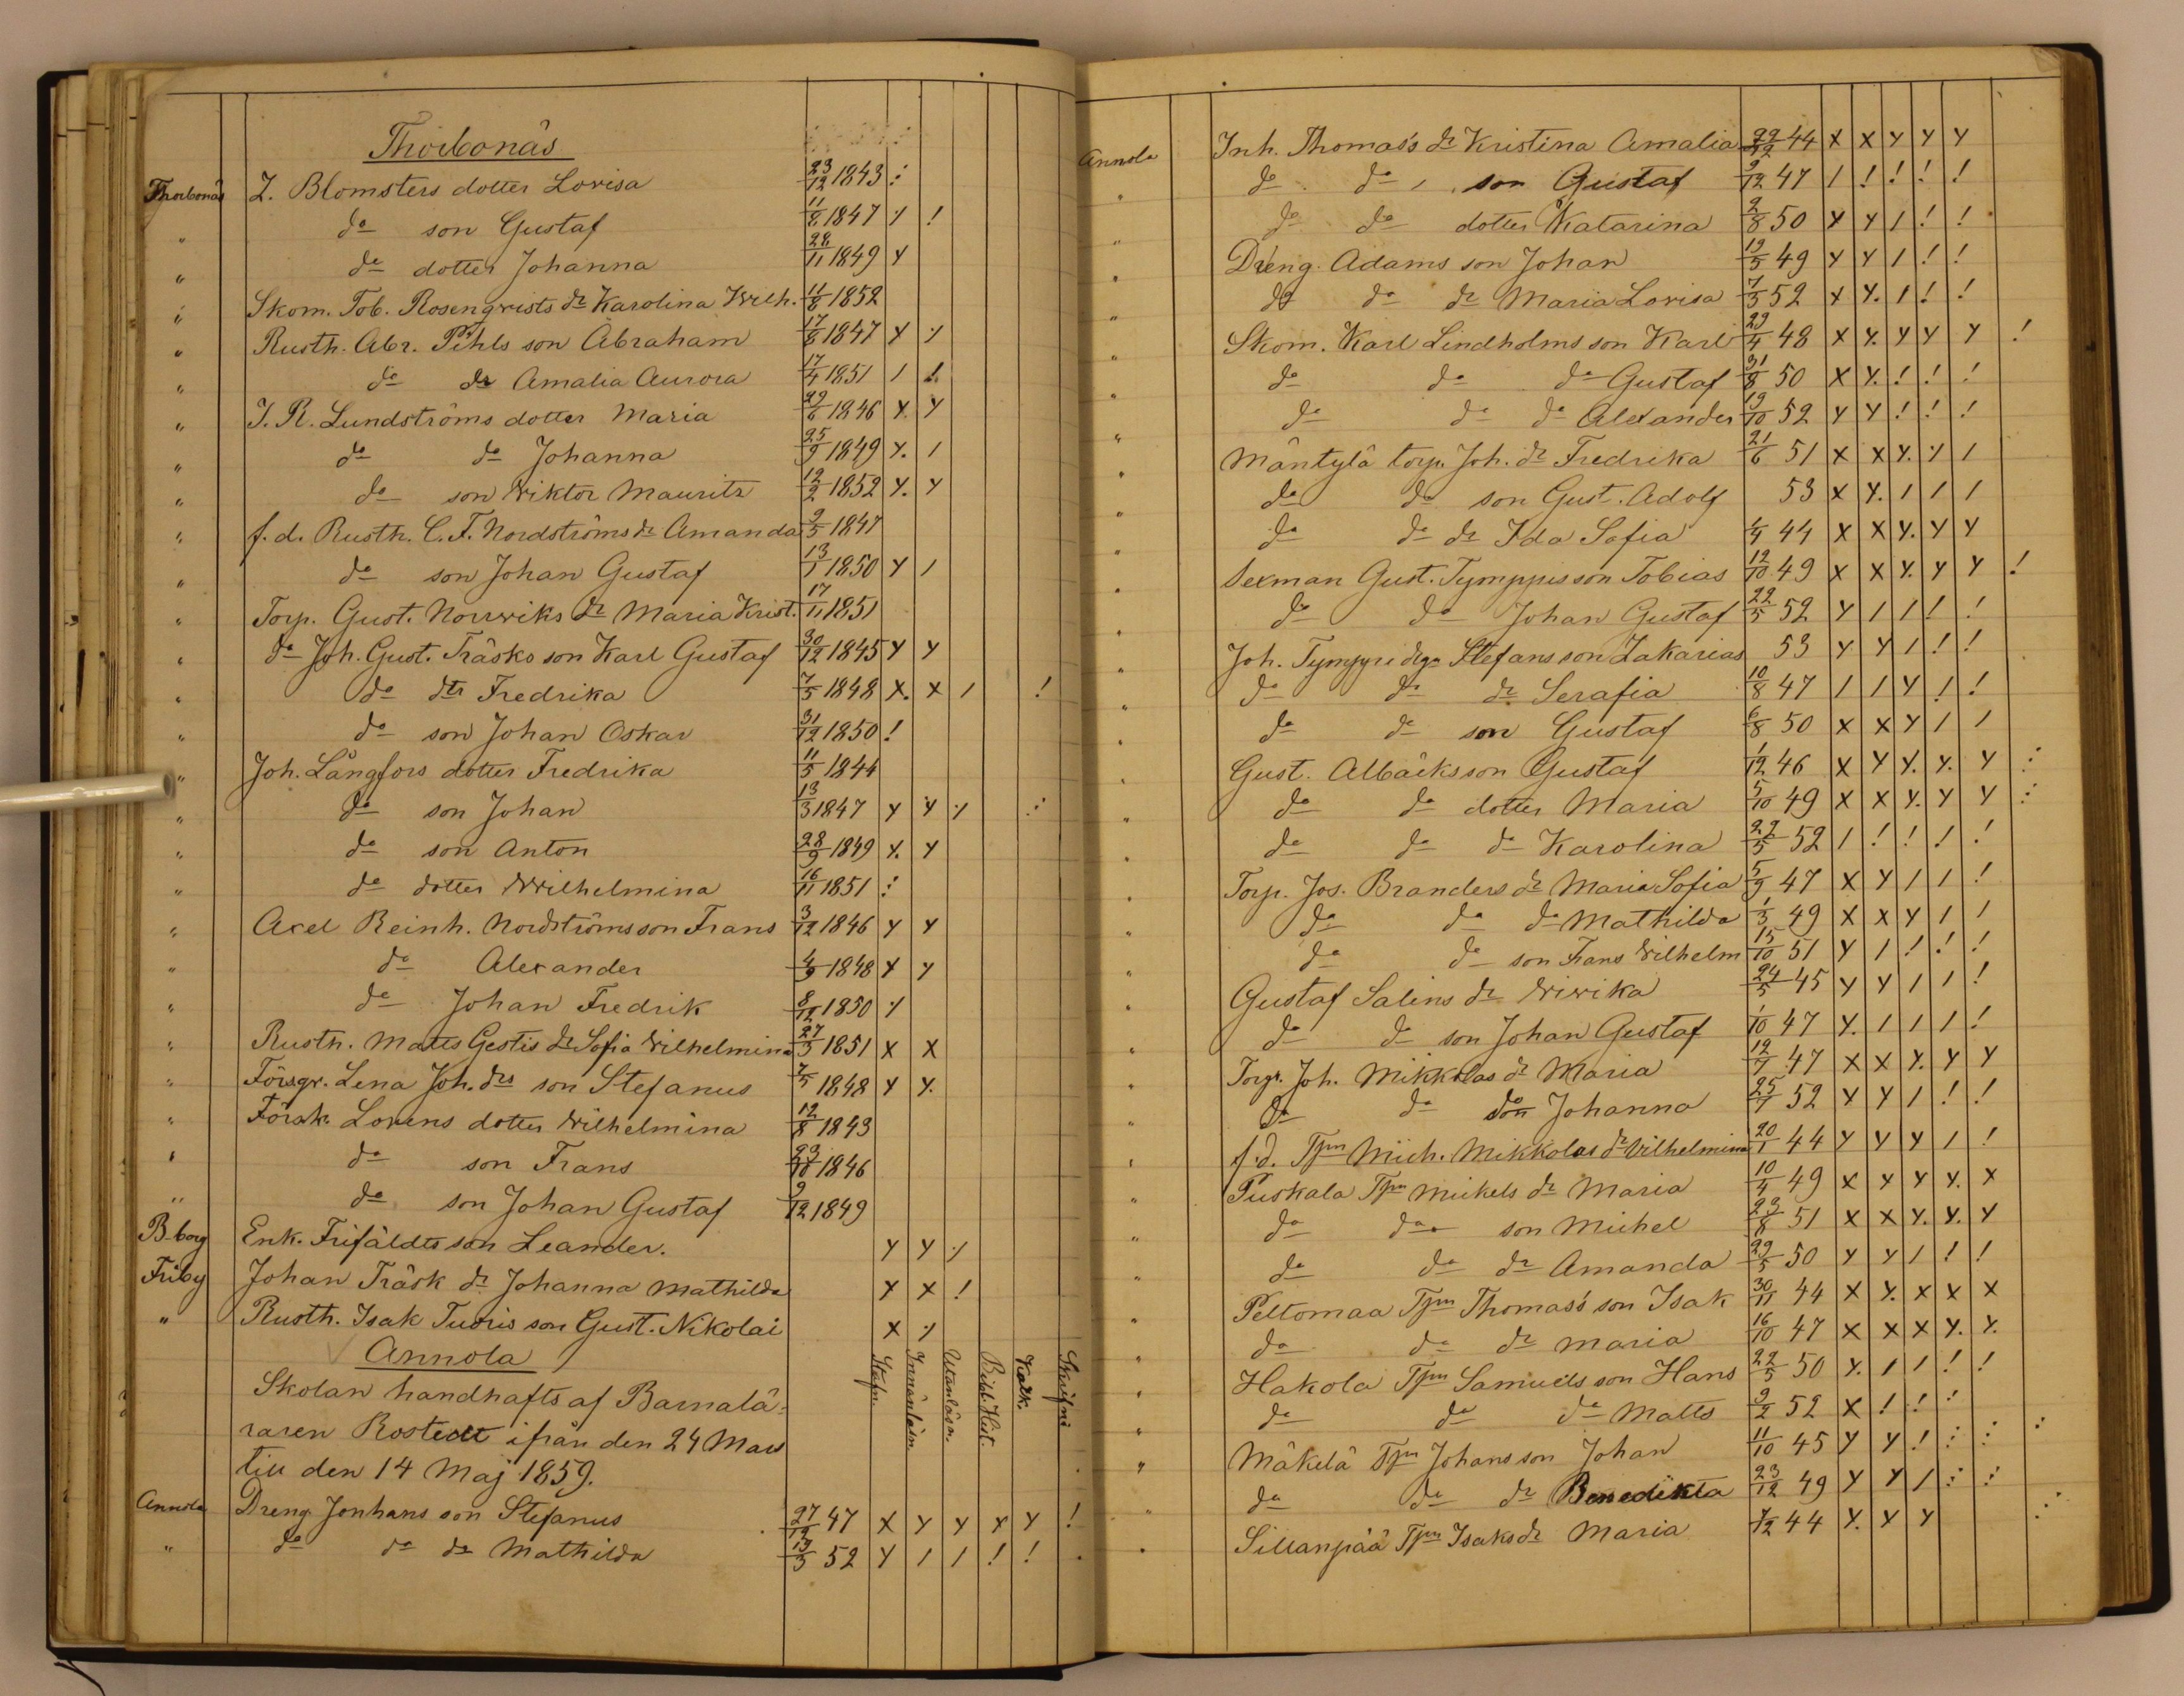 Thorbonäs
Thorbonäs Z. Blomsters dotter Lovisa 23/12 1843 :
" do son Gustaf 11/8 1847 ⁒ !
" do dotter Johanna 28/11 1849 Y
" Skom. Tob. Rosenqvists dr Karolina Wilh. 11/8 1852
" Rusth. Abr. Pihls son Abraham 17/8 1847 Y ⁒
" do dr Amalia Aurora 17/4 1851 / !
" J. R. Lundströms dotter Maria 29/6 1846 Y. Y
" do do Johanna 25/9 1849 Y. /
" do son Wiktor Mauritz 12/2 1852 Y. Y
" f. d. Rusth. C. F. Nordströms dr Amanda 9/5 1847
" do son Johan Gustaf 13/1 1850 Y /
" Torp. Gust. Norrviks dr Maria Krist. 17/11 1851
" do Joh. Gust. Träsks son Karl Gustaf 30/12 1845 Y Y
" do dtr Fredrika 7/5 1848 X. X / !
" do son Johan Oskar 31/12 1850 !
" Joh. Långfors dotter Fredrika 11/5 1844
" do son Johan 13/3 1847 Y Y ⁒ :
" do son Anton 28/9 1849 Y. Y
" do dotter Wilhelmina 16/11 1851 :
" Axel Reinh. Nordströms son Frans 3/12 1846 Y Y
" do Alexander 4/9 1848 Y Y
" do Johan Fredrik 8/12 1850 ⁒
" Rusth. Matts Gestis dr Sofia Vilhelmina 27/3 1851 X X
" Försgr. Lena Joh. drs son Stefanus 7/5 1848 Y Y.
" Försk. Lorens dotter Vilhelmina 12/8 1843
" do son Frans 23/10 1846
" do son Johan Gustaf 9/12 1849
B-borg Enk. Frifäldts son Leander. Y Y ⁒
Friby Johan Träsk dr Johanna Mathilda Y X !
" Rusth. Isak Tuoris son Gust. Nikolai X ⁒
Annola
Stafn. Innanläsn. Utanläsn. Bibl. Hist. Katk. Skrifni
Skolan handhafts af Barnalä-
raren Rostedt ifrån den 24 Mars
till den 14 Maj 1859.
Annola Dreng Jonhans son Stefanus 27/12 47 X Y Y X Y !
" do do dr Mathilda 13/3 52 Y / / ! !
Annola Inh. Thomas's dr Kristina Amalia 29/12 44 X X Y Y Y
" do do son Gustaf 9/12 47 / ! ! ! !
" do do dotter Katarina 2/8 50 Y Y / ! !
" Dreng. Adams son Johan 19/5 49 Y Y / ! !
" do do dr Maria Lovisa 7/3 52 X Y. / ! !
" Skom. Karl Lindholms son Karl 29/4 48 X Y. Y Y Y !
" do do do Gustaf 31/8 50 X Y. ! ! !
" do do do Alexander 19/10 52 Y Y ! ! !
" Mäntylä torp. Joh. dr Fredrika 21/6 51 X X Y. Y /
" do do son Gust. Adolf 53 X Y. / / /
" do do dr Ida Sofia 4/4 44 X X Y. Y Y
" Sexman Gust. Tymppis son Tobias 12/10 49 X X Y. Y Y !
" do do Johan Gustaf 22/5 52 Y / / ! !
" Joh. Tympyri Stefans son Zakarias 53 Y Y / ! !
" do do dr Serafia 10/8 47 / / Y ! !
" do do son Gustaf 6/8 50 X X Y / /
" Gust. Albäcks son Gustaf 1/12 46 X Y Y. Y. Y :
" do do dotter Maria 5/10 49 X X Y. Y Y :
" do do do Karolina 22/5 52 / ! ! ! !
" Torp. Jos. Branders dr Maria Sofia 5/9 47 X Y / / !
" do do do Mathilda 1/3 49 X X Y / /
" do do son Frans Wilhelm 15/10 51 Y / ! ! !
" Gustaf Salins dr Wivika 24/5 45 Y Y / / !
" do do son Johan Gustaf 1/10 47 Y. / / / !
" Torp. Joh. Mikkolas dr Maria 12/7 47 X X Y. Y Y
" do do don Johanna 25/7 52 Y Y / ! !
" f. d. Tpn Mich. Mikkolas dr Vilhelmina 20/1 44 Y Y Y / !
" Puskala Tpn Mickels dr Maria 10/4 49 X Y Y Y. X
" do do son Michel 29/8 51 X X Y. Y. Y
" do do dr Amanda 29/5 50 Y Y / ! !
" Peltomaa Tpn Thomas's son Isak 30/11 44 X Y. X X X
" do do dr Maria 16/10 47 X X X Y. Y.
" Hakola Tpn Samuels son Hans 22/5 50 Y. / / ! !
" do do do Matts 9/2 52 X ! ! !
" Mäkelä Tpn Johans son Johan 11/10 45 Y Y ! : : :
" do do dr Benedikta 23/12 49 Y Y / : :
" Sillanpää Tpn Isaks dr Maria 7/12 44 Y. Y Y :